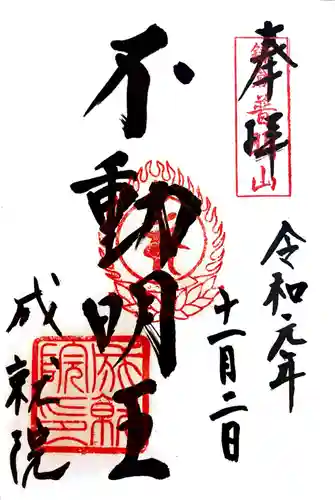 奉拝
令和元年
十一月二日
不動明王
成就院
成就院印